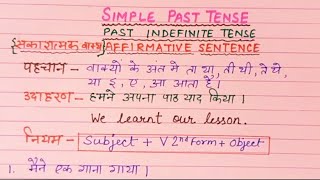 SIMPLE PAST TENSE
PAST INDEFINITE TENSE
{सकारात्मक वाक्य} AFFIRMATIVE SENTENCE
पहचान - वाक्यों के अंत मे ता था, ती थी, ते थे,
या ई, ए, आ आता है।
उदाहरण - हमने अपना पाठ याद किया।
We learnt our lesson.
नियम - Subject + V 2nd Form + Object
1. मैने एक गाना गाया।